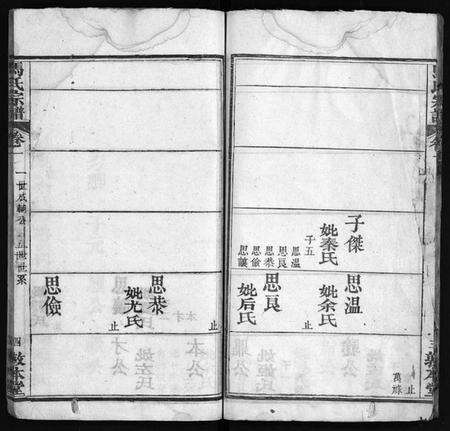 子傑
妣秦氏
子五
思温
思良
思恭
思儉
思讓
思温
妣余氏
止
萬
思良
妣后氏
敦本堂
馬氏宗譜
卷一
一世成輔公
五世世系
四
敦本堂
止
思恭
妣尤氏
止
思儉